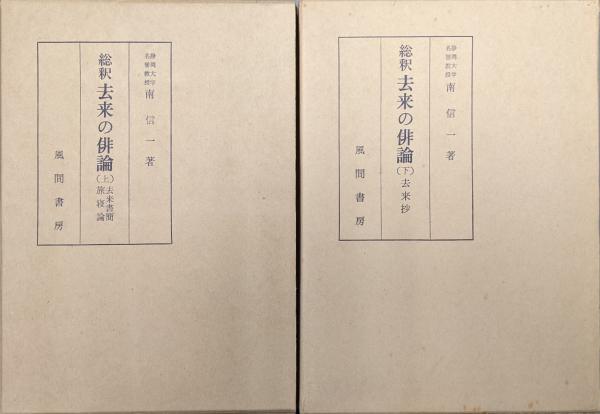 静岡大学
名誉教授
南信一著
総釈去来の俳論(上)去来書簡
旅寝論
風間書房
静岡大学
名誉教授
南信一著
総釈去来の俳論(下)去来抄
風間書房